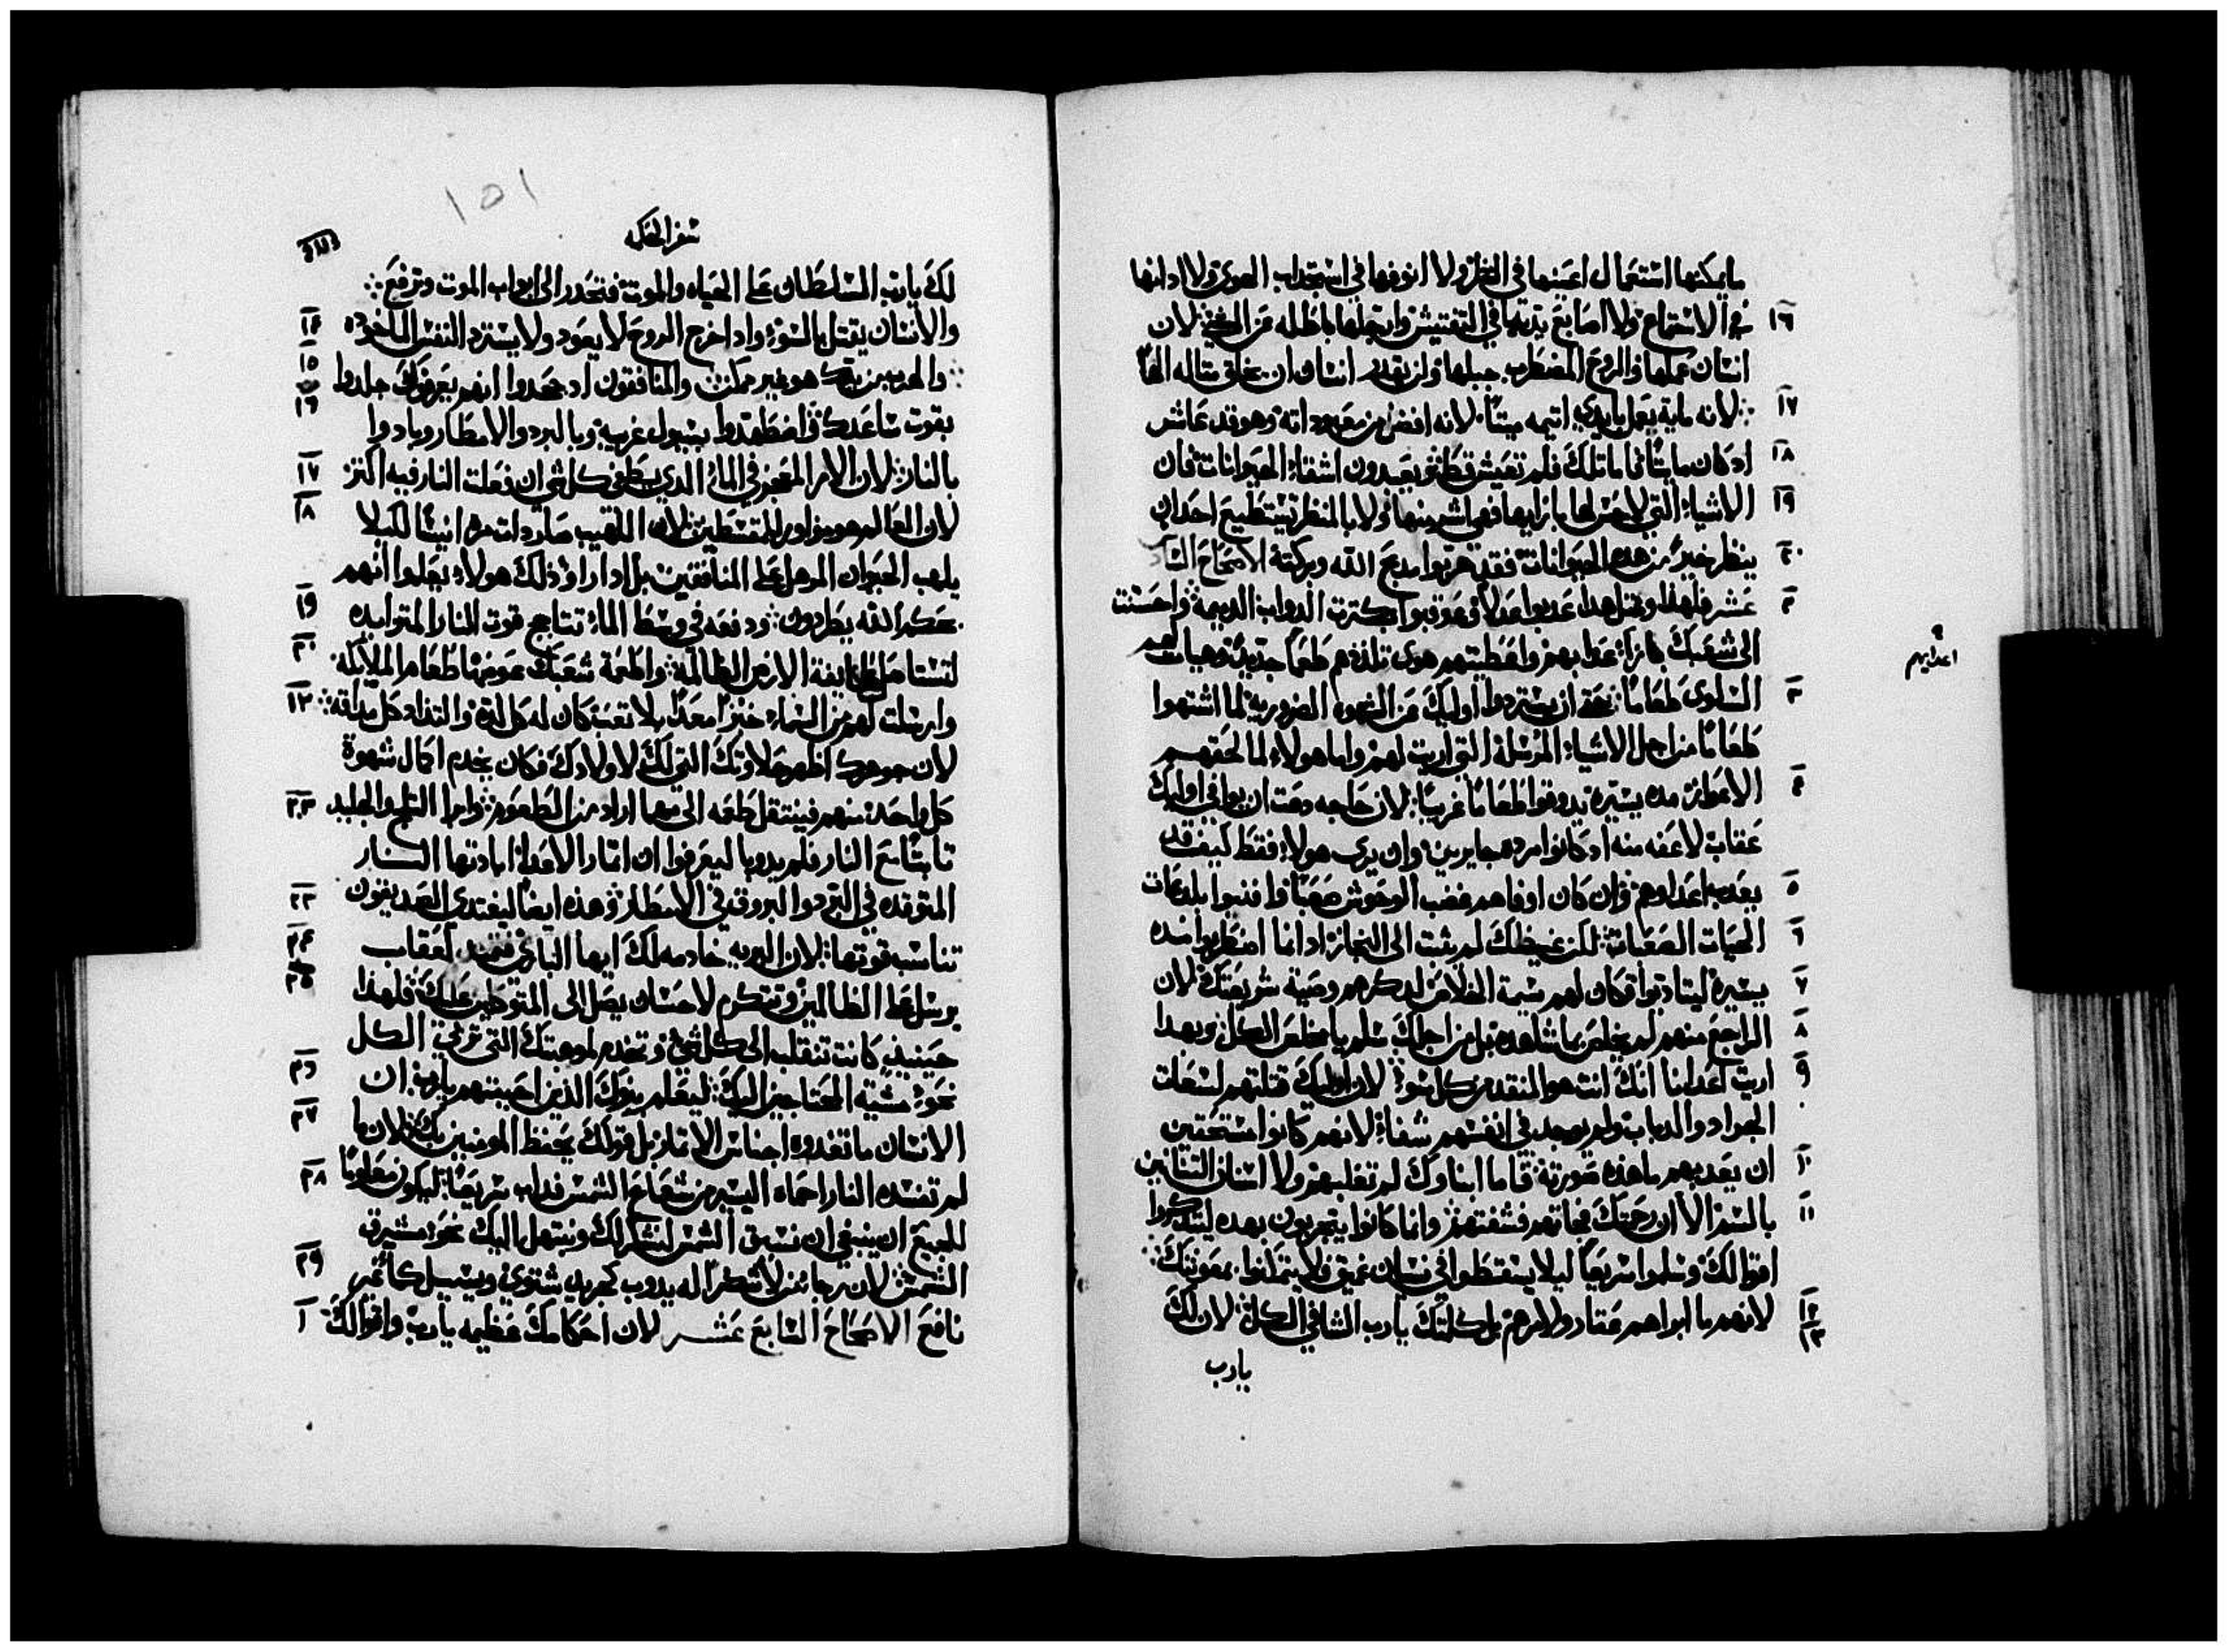 مايمكنها استعمال اعينها في النظر ولا انوفها في استجداب الهوى ولا ادانها
في الاستماع ولا اصابع يديها في التفتيش وارجلها باطله عن المشي لان
١٦
انسان عملها والروح المضطرب جبلها ولن يقدر انسان ان يخلق مثاله الها
لانه مايه يعمل بايدي اتيمه ميتا لانه افضل من معبوداته وهو قد عاش
١٧
اد كان مايتا فاما تلك فلم تعيش قط ثم يعبدون اشقاء الحيوانات فان
١٨
الاشياء التي لا حس لها بازايها فهي اشر منها ولا بالمنظر يستطيع احد ان
١٩
ينظر خير من هذه الحيوانات فقد هربوا مدح الله وبركته الاصحاح السادس
٢٠
عشر فلهذا ومثل هدا عدبوا عدلا وعوقبوا بكترت الدواب الديمه واحسنت
٢
الى شعبك بازاء عدابهم واعطيتهم هوى تلذذهم طعما جديدا وهيات لهم
اعدايهم
السلوى طعاما حتى ان يستردوا اوليك عن الشهوه الضروريه لما اشتهوا
٣
طعاما من اجل الاشياء المرسله التي اريت لهم واما هولاء لما لحقهم
الاعواز مده يسيره يدوقوا طعاما غريبا لان حاجه دعت ان يوافي اوليك
٤
عقاب لا عفه منه اد كانوا مرده جايرين وان يرى هولاء فقط كيف قد
يعدب اعداوهم وان كان اوفاهم غضب الوحوش صعبا وافنيوا بلدعات
٥
الحيات الصعبات لكن غيظك لم يثبت الى النجاز ادانما اضطربوا مده
٦
يسيره ليتادبوا وكان لهم سيمة الخلاص لدكرهم وصية شريعتك لان
٧
الراجع منهم لم يخلص بما شاهده بل من اجلك سلم يا مخلص الكل وبهدا
٨
اريت اعدانا انك انت هو المنقد من كل سوء لان اوليك قتلتهم لسعات
٩
الجراد والدباب ولم يوجد في انفسهم شفاء لانهم كانوا مستحقين
ان يعديهم ما هذه صورته فاما ابناوك لم تغلبهم ولا اسنان التنانين
١٠
بالسم الا ان رحمتك فجاتهم فشفتهم وانما كانوا يتجربون بهده ليتدكروا
١١
اقوالك وسلموا سريعا ليلا يسقطوا في نسيان عميق ولا يتملوا بمعونتك
لانهم ما ابراهم عقار ولا مرهم بل كلمتك يارب الشافي الكل لان لك
١٢
١٣
يارب
١٥١
سفر الحكمه
لك يارب السلطان على الحياه والموت فتحدر الى ابواب الموت وترفع
والانسان يقتل بالسوء وادا خرج الروح لا يعود ولا يسترد النفس الماخوده
١٤
والهرب من يدك هو غير ممكن والمنافقون اد جحدوا انهم يعرفوك جلدوا
١٥
١٦
بقوت ساعدك واضطهدوا بسيول غريبه وبالبرد والامطار وبادوا
بالنار لان الامر المعجز في الماء الدي يطفي كل شي ان فعلت النار فيه اكتر
١٧
لان العالم هو موازر للمقسطين لان اللهيب صار دات مره انيسا لكيلا
١٨
يلهب الحيوان المرسل على المنافقين بل ادا راو ذلك هولاء يعلموا انهم
بحكم الله يطردون ودفعه في وسط الماء تتاجج قوت النار المتوايده
١٩
لتستاصل طايفة الارض الظالمه واطعمة شعبك عوضها طعام الملايكه
٢٠
وارسلت لهم من السماء خبزا معدا بلا تعب كان له كل لده والتداد كل مداقه
٢١
لان جوهرك اظهر حلاوتك التي لك لاولادك فكان يخدم اكمال شهوة
كل واحد منهم فينتقل طعمه الى مهما اراد من الطعوم واما الثلج والجليد
٢٢
تابتا مع النار فلم يدوبا ليعرفوا ان اتمار الاعداء ابادتها النار
المتوقده في البرد والبروق في الامطار وهذه ايضا ليغتدى الصديقون
٢٣
تناست قوتها لان البريه خادمه لك ايها الباري فتمتد لعقاب
٢٤
يرسل على الظالمين وتتكرم لاحسان يصل الى المتوكلين عليك فلهذا
٢٥
حينيد كانت تنقلب الى كل شي وتخدم لموهبتك التي تربي الكل
نحو مشية المحتاجين اليك ليعلم بنوك الذين احببتهم يارب ان
٢٦
الانسان ما تغدوه اجناس الاتمار بل قولك يحفظ المومنين بك لان ما
٢٧
لم تفسده النار احماه اليسير من شعاع الشمس فداب سريعا ليكون معلوما
٢٨
للجميع ان ينبغي ان نسبق الشمس لشكرك ونبتهل اليك نحو مشرق
الشمس لان رجا من لا شكرا له يدوب كجريد شتوي ويسيل كما غير
٢٩
نافع الاصحاح السابع عشر لان احكامك عظيمه يارب واقوالك
١